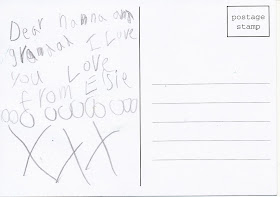 Dear nanna and
grannah I Love
you Love
from Elsie
OOO OOOOO OOO
XXX
postage
stamp